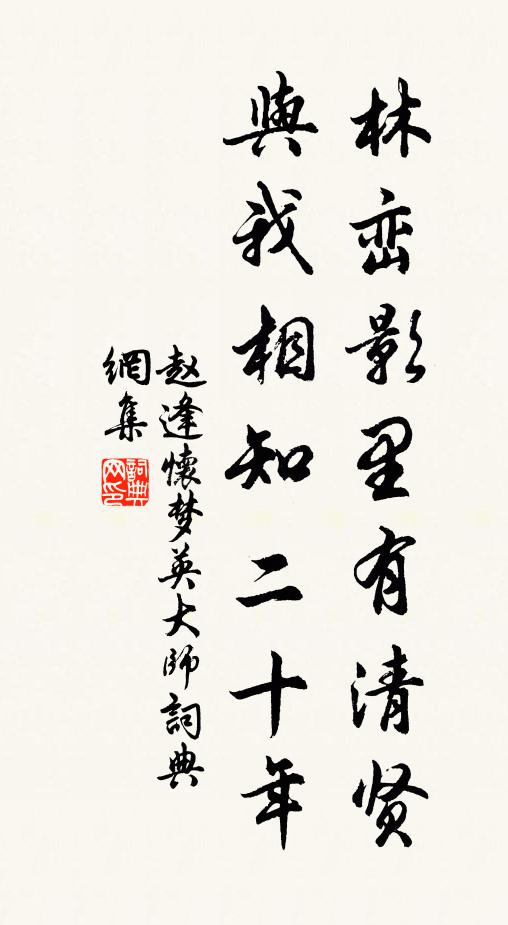 林峦影里有清贤
與我相知二十年
赵逢懷梦英大師詞典
網集
詞典
网印